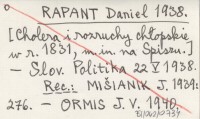 RAPANT Daniel 1938.
[Cholera i rozruchy chłopskie
w r. 1831, m. in. na Spiszu.]
– Slov. Politika 22 X 1938.
Rec.: MIŠIANIK J. 1939:
276. – ORMIS J. V. 1940.